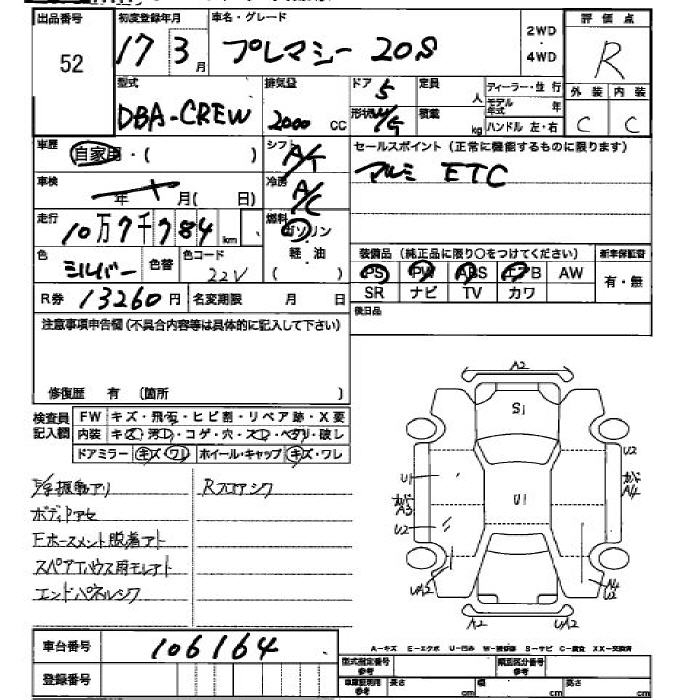 出品番号 初度登録年月 車名・グレード 2WD・4WD 評価点
52 17 3月 プレマシー 20S R
型式 排気量 ドア 5 定員 人 ディーラー・並行 外装 内装
DBA-CREW 2000 CC 形状 積載 kg モデル年式 年 ハンドル 左・右 C C
車歴 自家用・( ) シフト A/T セールスポイント(正常に機能するものに限ります)
車検 年 月( 日) 冷房 A/C アルミ ETC
走行 10万7千784 km 燃料 ガソリン
軽油
( )
色 シルバー 色替 色コード 22V
装備品(純正品に限り○をつけてください) 新車保証書
PS PW ABS エアB AW 有・無
SR ナビ TV カワ
R券 13260円 名変期限 月 日
後日品
注意事項申告欄(不具合内容等は具体的に記入して下さい)
修復歴 有 (箇所 )
検査員記入欄 FW キズ・飛石・ヒビ割・リペア跡・X要
内装 キズ・汚れ・コゲ・穴・スレ・ベタリ・破レ
ドアミラー キズ・ワレ ホイール・キャップ キズ・ワレ
振動アリ Rフロアシワ
ボディサビアセ
Fホースメント脱着アト
スペアハウス用モレアト
エンドパネルシワ
A2
S1
U2
U1
ガバ A3
U2
U1
ガバ A4
UA2
A2
UA2
A4
U2
車台番号 106164
A-キズ E-エクボ U-凹み W-補修跡 S-サビ C-腐食 XX-交換済
登録番号
型式指定番号 参考 類別区分番号 参考
車庫証明用 参考 長さ cm 幅 cm 高さ cm